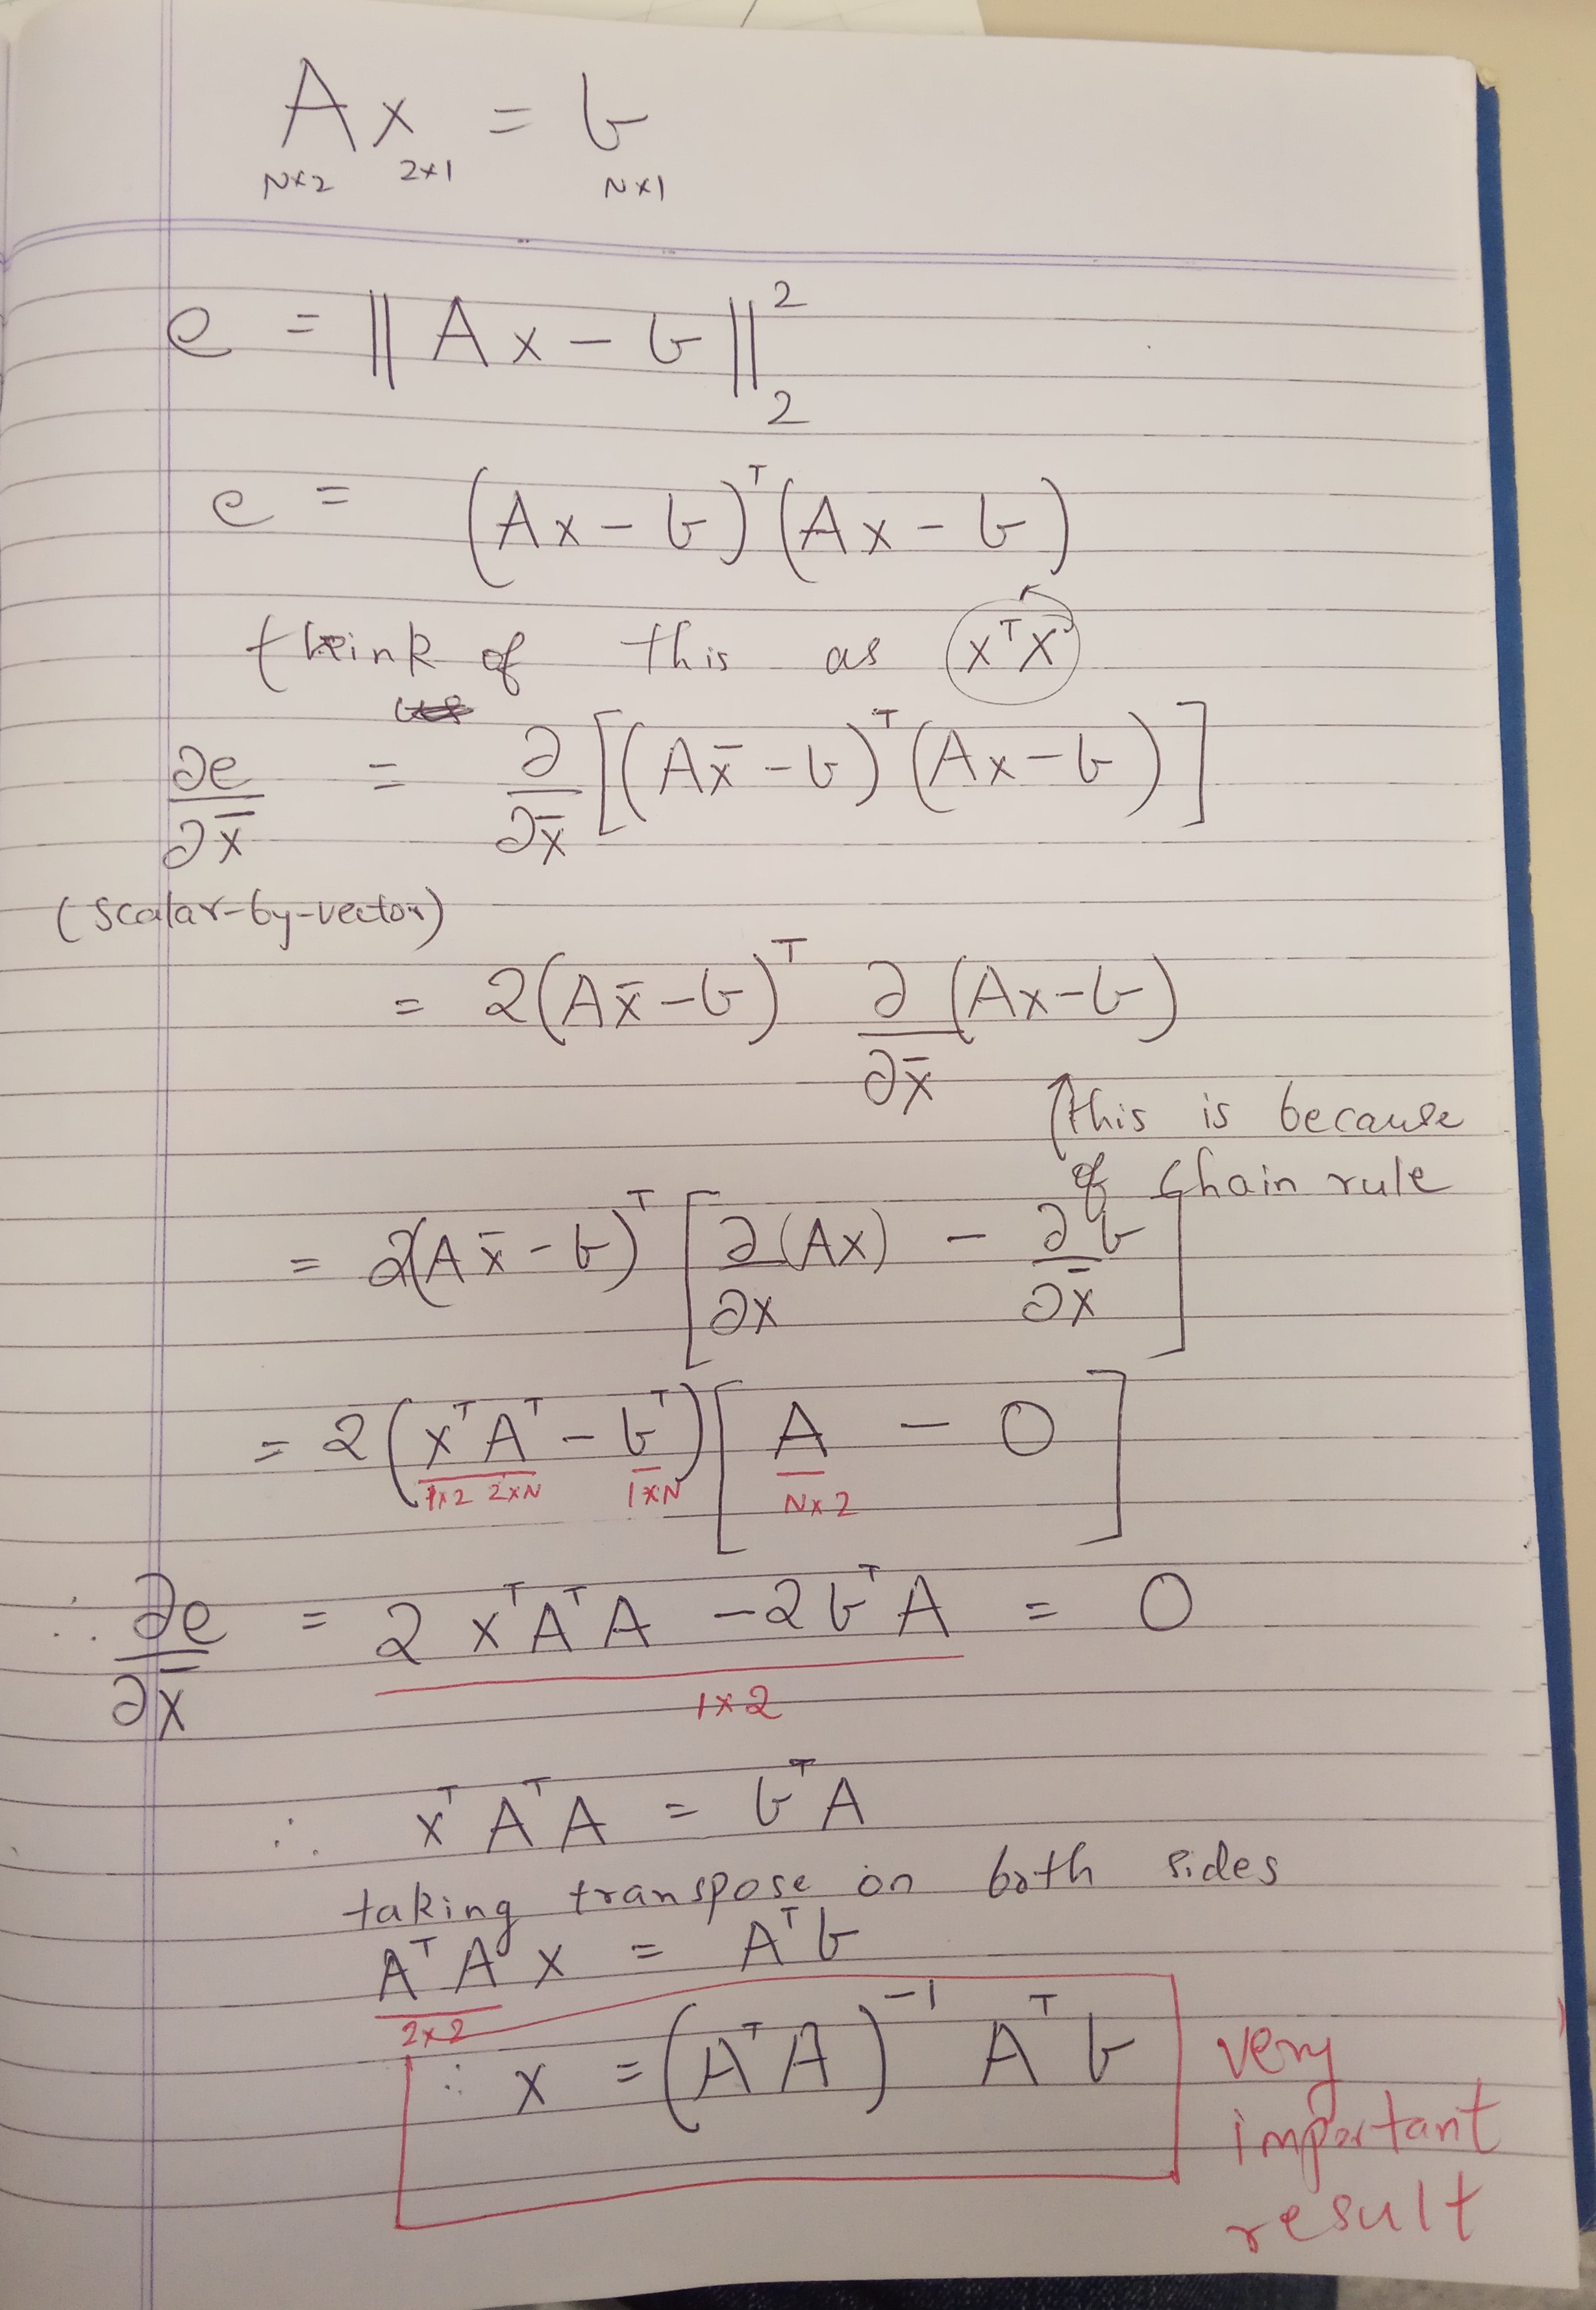 A x = b
N×2 2×1 N×1
e = ||Ax - b||₂²
e = (Ax - b)ᵀ(Ax - b)
think of this as xᵀx
∂e/∂x̄ = ∂/∂x̄ [(Ax̄ - b)ᵀ(Ax - b)]
(scalar-by-vector)
= 2(Ax̄ - b)ᵀ ∂/∂x̄ (Ax - b)
↑ this is because
of chain rule
= 2(Ax̄ - b)ᵀ [∂(Ax)/∂x - ∂b/∂x̄]
= 2(xᵀAᵀ - bᵀ)[A - 0]
1×2 2×N 1×N N×2
∴ ∂e/∂x̄ = 2xᵀAᵀA - 2bᵀA = 0
1×2
∴ xᵀAᵀA = bᵀA
taking transpose on both sides
AᵀA x = Aᵀb
2×2
∴ x = (AᵀA)⁻¹ Aᵀ b
very
important
result